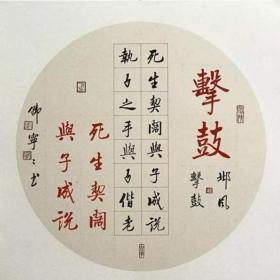 擊鼓
邶风
擊鼓
死生契阔與子成说
執子之手與子偕老
死生契阔
與子成说